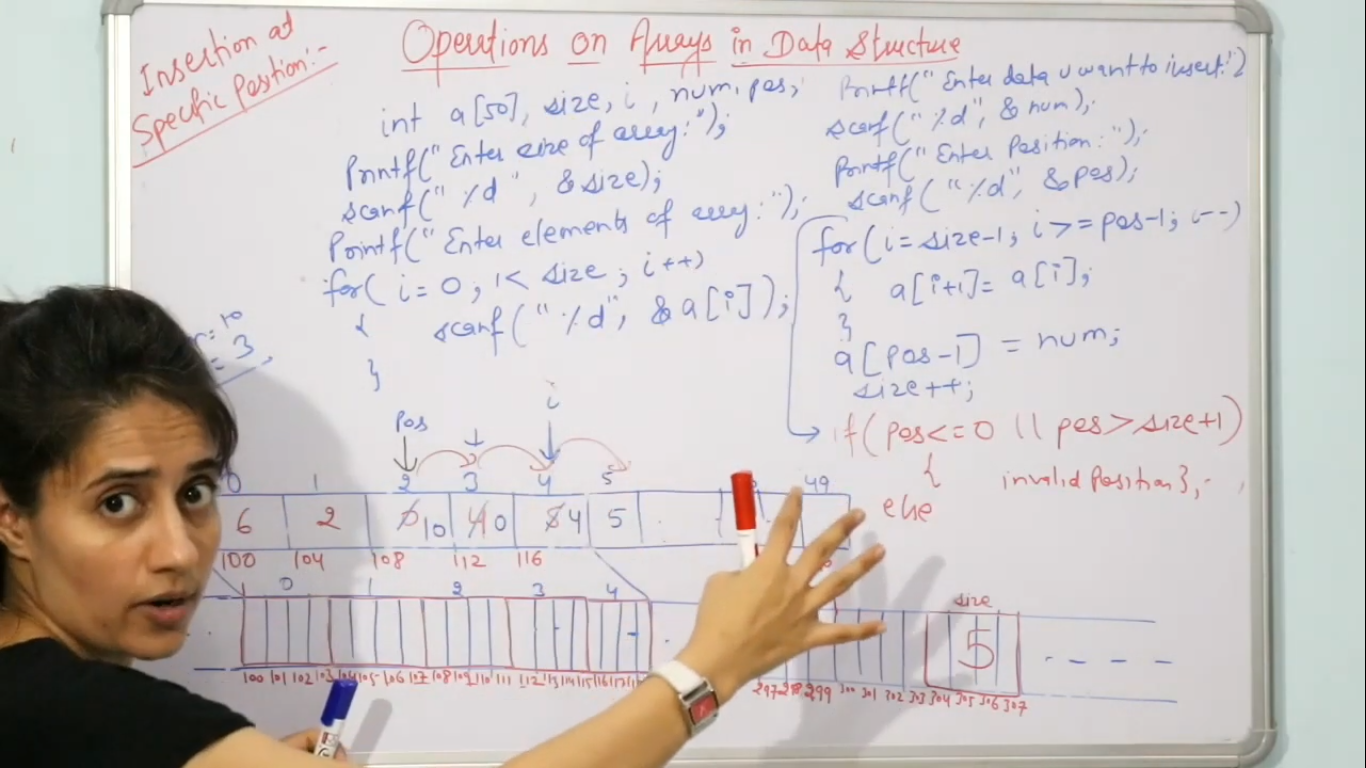 Insertion at
Specific Position:-
Operations on Arrays in Data Structure
int a[50], size, i, num, pos;
Printf("Enter size of array:");
scanf("%d", &size);
Printf("Enter elements of array:");
for(i=0; i< size; i++)
{ scanf("%d", &a[i]);
}
Printf("Enter data u want to insert:")
scanf("%d", & num);
Printf("Enter Position:");
scanf("%d", &pos);
for(i=size-1; i>=pos-1; i--)
{ a[i+1]= a[i];
}
a[pos-1] = num;
size++;
if(pos<=0 || pos>size+1)
{ invalid Position};
else
= 10
= 3
Pos i
0 1 2 3 4 5 49
6 2 0 10 4 0 8 4 5
100 104 108 112 116
0 1 2 3 4 size
5 - - - -
100 101 102 103 104 105 106 107 108 109 110 111 112 113 114 115 116 117 297 298 299 300 301 302 303 304 305 306 307